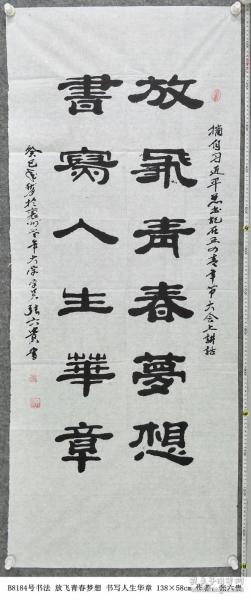 放飛青春夢想
書寫人生華章
摘自習近平總書記在五四青年節大會上講話
癸巳
張六貴書
B8184号书法 放飞青春梦想 书写人生华章 138×58cm 作者:张六贵